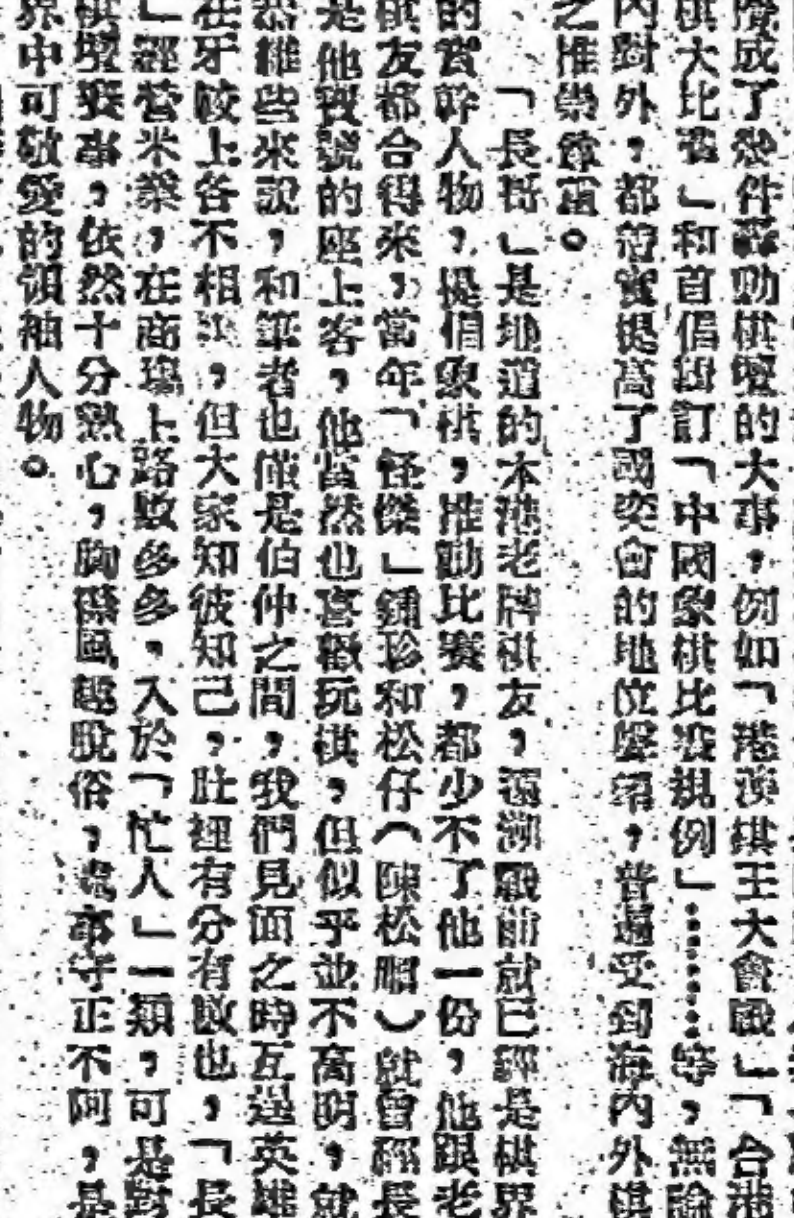 成了幾件轟動棋壇的大事，例如「港澳棋王大會戰」「合港
棋大比賽」和首倡訂「中國象棋比賽規例」………等，無論
內對外，都着實提高了國奕會的地位聲望，普遍受到海內外棋
之推崇
「長哥」是地道的本港老牌棋友，遠溯戰前就已經是棋界
的實幹人物，提倡象棋，推動比賽，都少不了他一份，他跟老
棋友都合得來，當年「怪傑」鍾珍和松仔（陳松）就曾經長
是他寶號的座上客，他當然也喜歡玩棋，但似乎並不高明，就
悉維些來說，和筆者也僅是伯仲之間，我們見面之時互逞英雄
在牙較上各不相，但大家知彼知己，肚裡有分有數也，「長
」經營米業，在商場上路數多多，入於「忙人」一類，可是對
棋壇裝事，依然十分熱心，胸襟風趣脫俗，處事守正不阿，是
界中可敬愛的領袖人物。